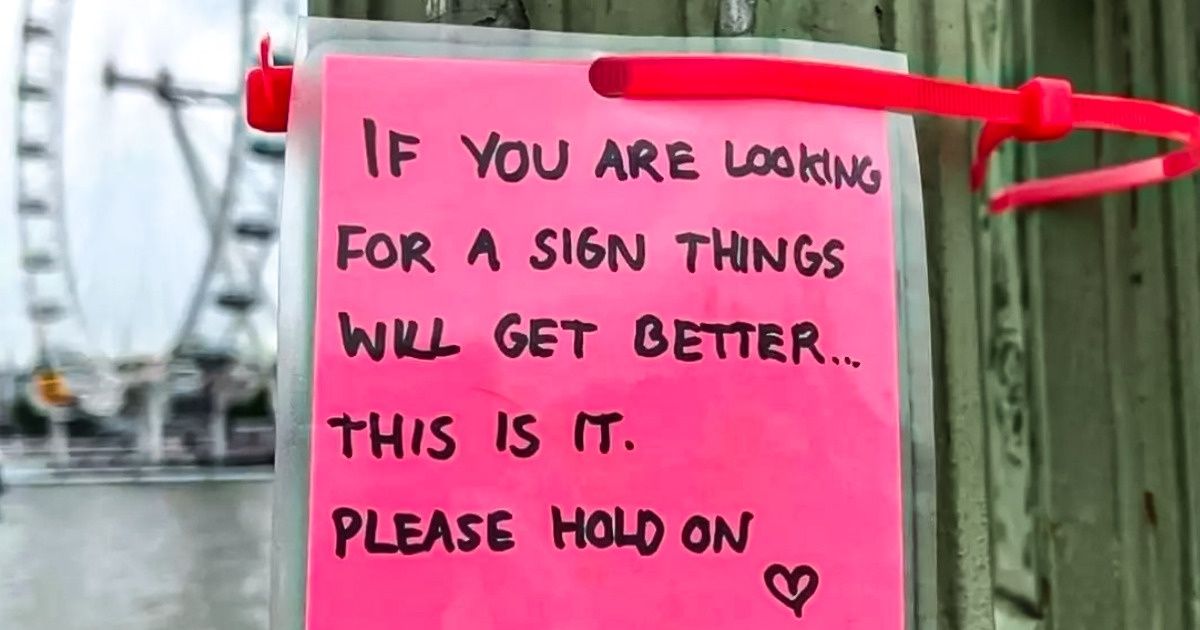 IF YOU ARE LOOKING
FOR A SIGN THINGS
WILL GET BETTER...
THIS IS IT.
PLEASE HOLD ON